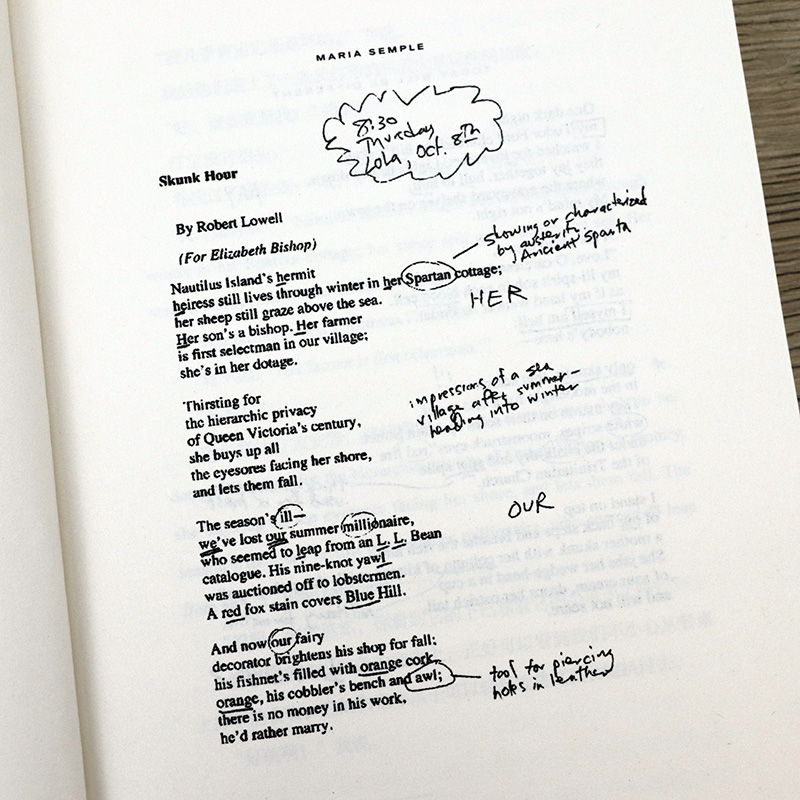 MARIA SEMPLE
8:30
Thursday
Lola, Oct. 8th
Skunk Hour
By Robert Lowell
(For Elizabeth Bishop)
showing or characterized
by austerity.
Ancient Sparta
Nautilus Island's hermit
heiress still lives through winter in her Spartan cottage;
her sheep still graze above the sea.
HER
Her son's a bishop. Her farmer
is first selectman in our village;
she's in her dotage.
Thirsting for
the hierarchic privacy
of Queen Victoria's century,
she buys up all
the eyesores facing her shore,
and lets them fall.
impressions of a sea
village after summer—
heading into winter
The season's ill—
we've lost our summer millionaire,
who seemed to leap from an L. L. Bean
catalogue. His nine-knot yawl
was auctioned off to lobstermen.
A red fox stain covers Blue Hill.
OUR
And now our fairy
decorator brightens his shop for fall;
his fishnet's filled with orange cork,
orange, his cobbler's bench and awl;
there is no money in his work,
he'd rather marry.
tool for piercing
holes in leather